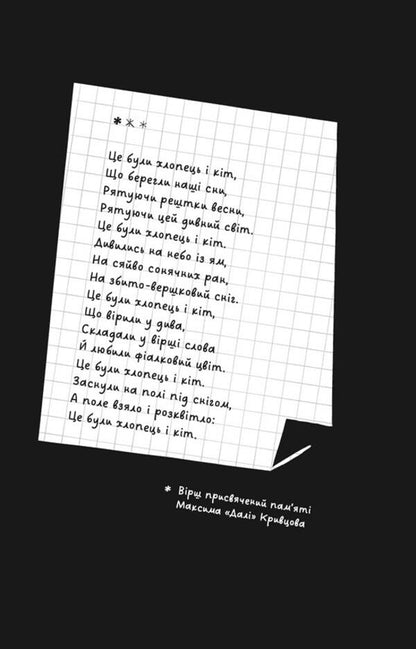 * * *
Це були хлопець і кіт,
Що берегли наші сни,
Рятуючи рештки весни,
Рятуючи цей дивний світ.
Це були хлопець і кіт.
Дивились на небо із ям,
На сяйво сонячних ран,
На збито-вершковий сніг.
Це були хлопець і кіт,
Що вірили у дива,
Складали у вірші слова
Й любили фіалковий цвіт.
Це були хлопець і кіт.
Заснули на полі під снігом,
А поле взяло і розквітло:
Це були хлопець і кіт.
* Вірш присвячений пам'яті
Максима «Далі» Кривцова